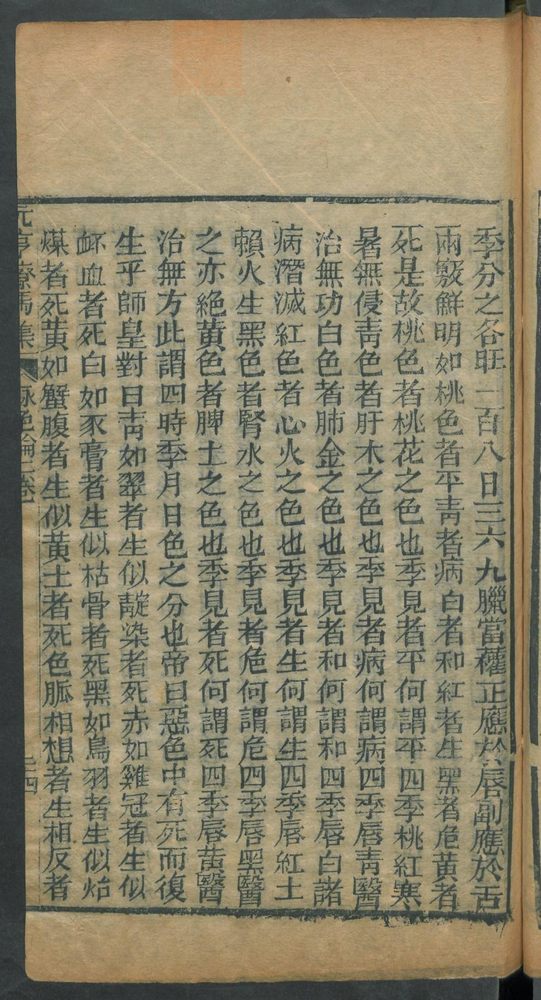 季分之各旺一百八日三六九臘當權正應於唇副應於舌
兩竅鮮明如桃色者平靑者病白者和紅者生黑者危黃者
死是故桃色者桃花之色也季見者平何謂平四季桃紅寒
暑無侵靑色者肝木之色也季見者病何謂病四季唇靑醫
治無功白色者肺金之色也季見者和何謂和四季唇白諸
病潛滅紅色者心火之色也季見者生何謂生四季唇紅土
賴火生黑色者腎水之色也季見者危何謂危四季唇黑醫
之亦絕黃色者脾土之色也季見者死何謂死四季唇黃醫
治無方此謂四時季月日色之分也帝曰惡色中有死而復
生乎師皇對曰靑如翠者生似靛染者死赤如雞冠者生似
衃血者死白如豕膏者生似枯骨者死黑如烏羽者生似炲
煤者死黃如蟹腹者生似黃土者死色脈相想者生相反者
元亨療馬集 脉色論二卷 二四